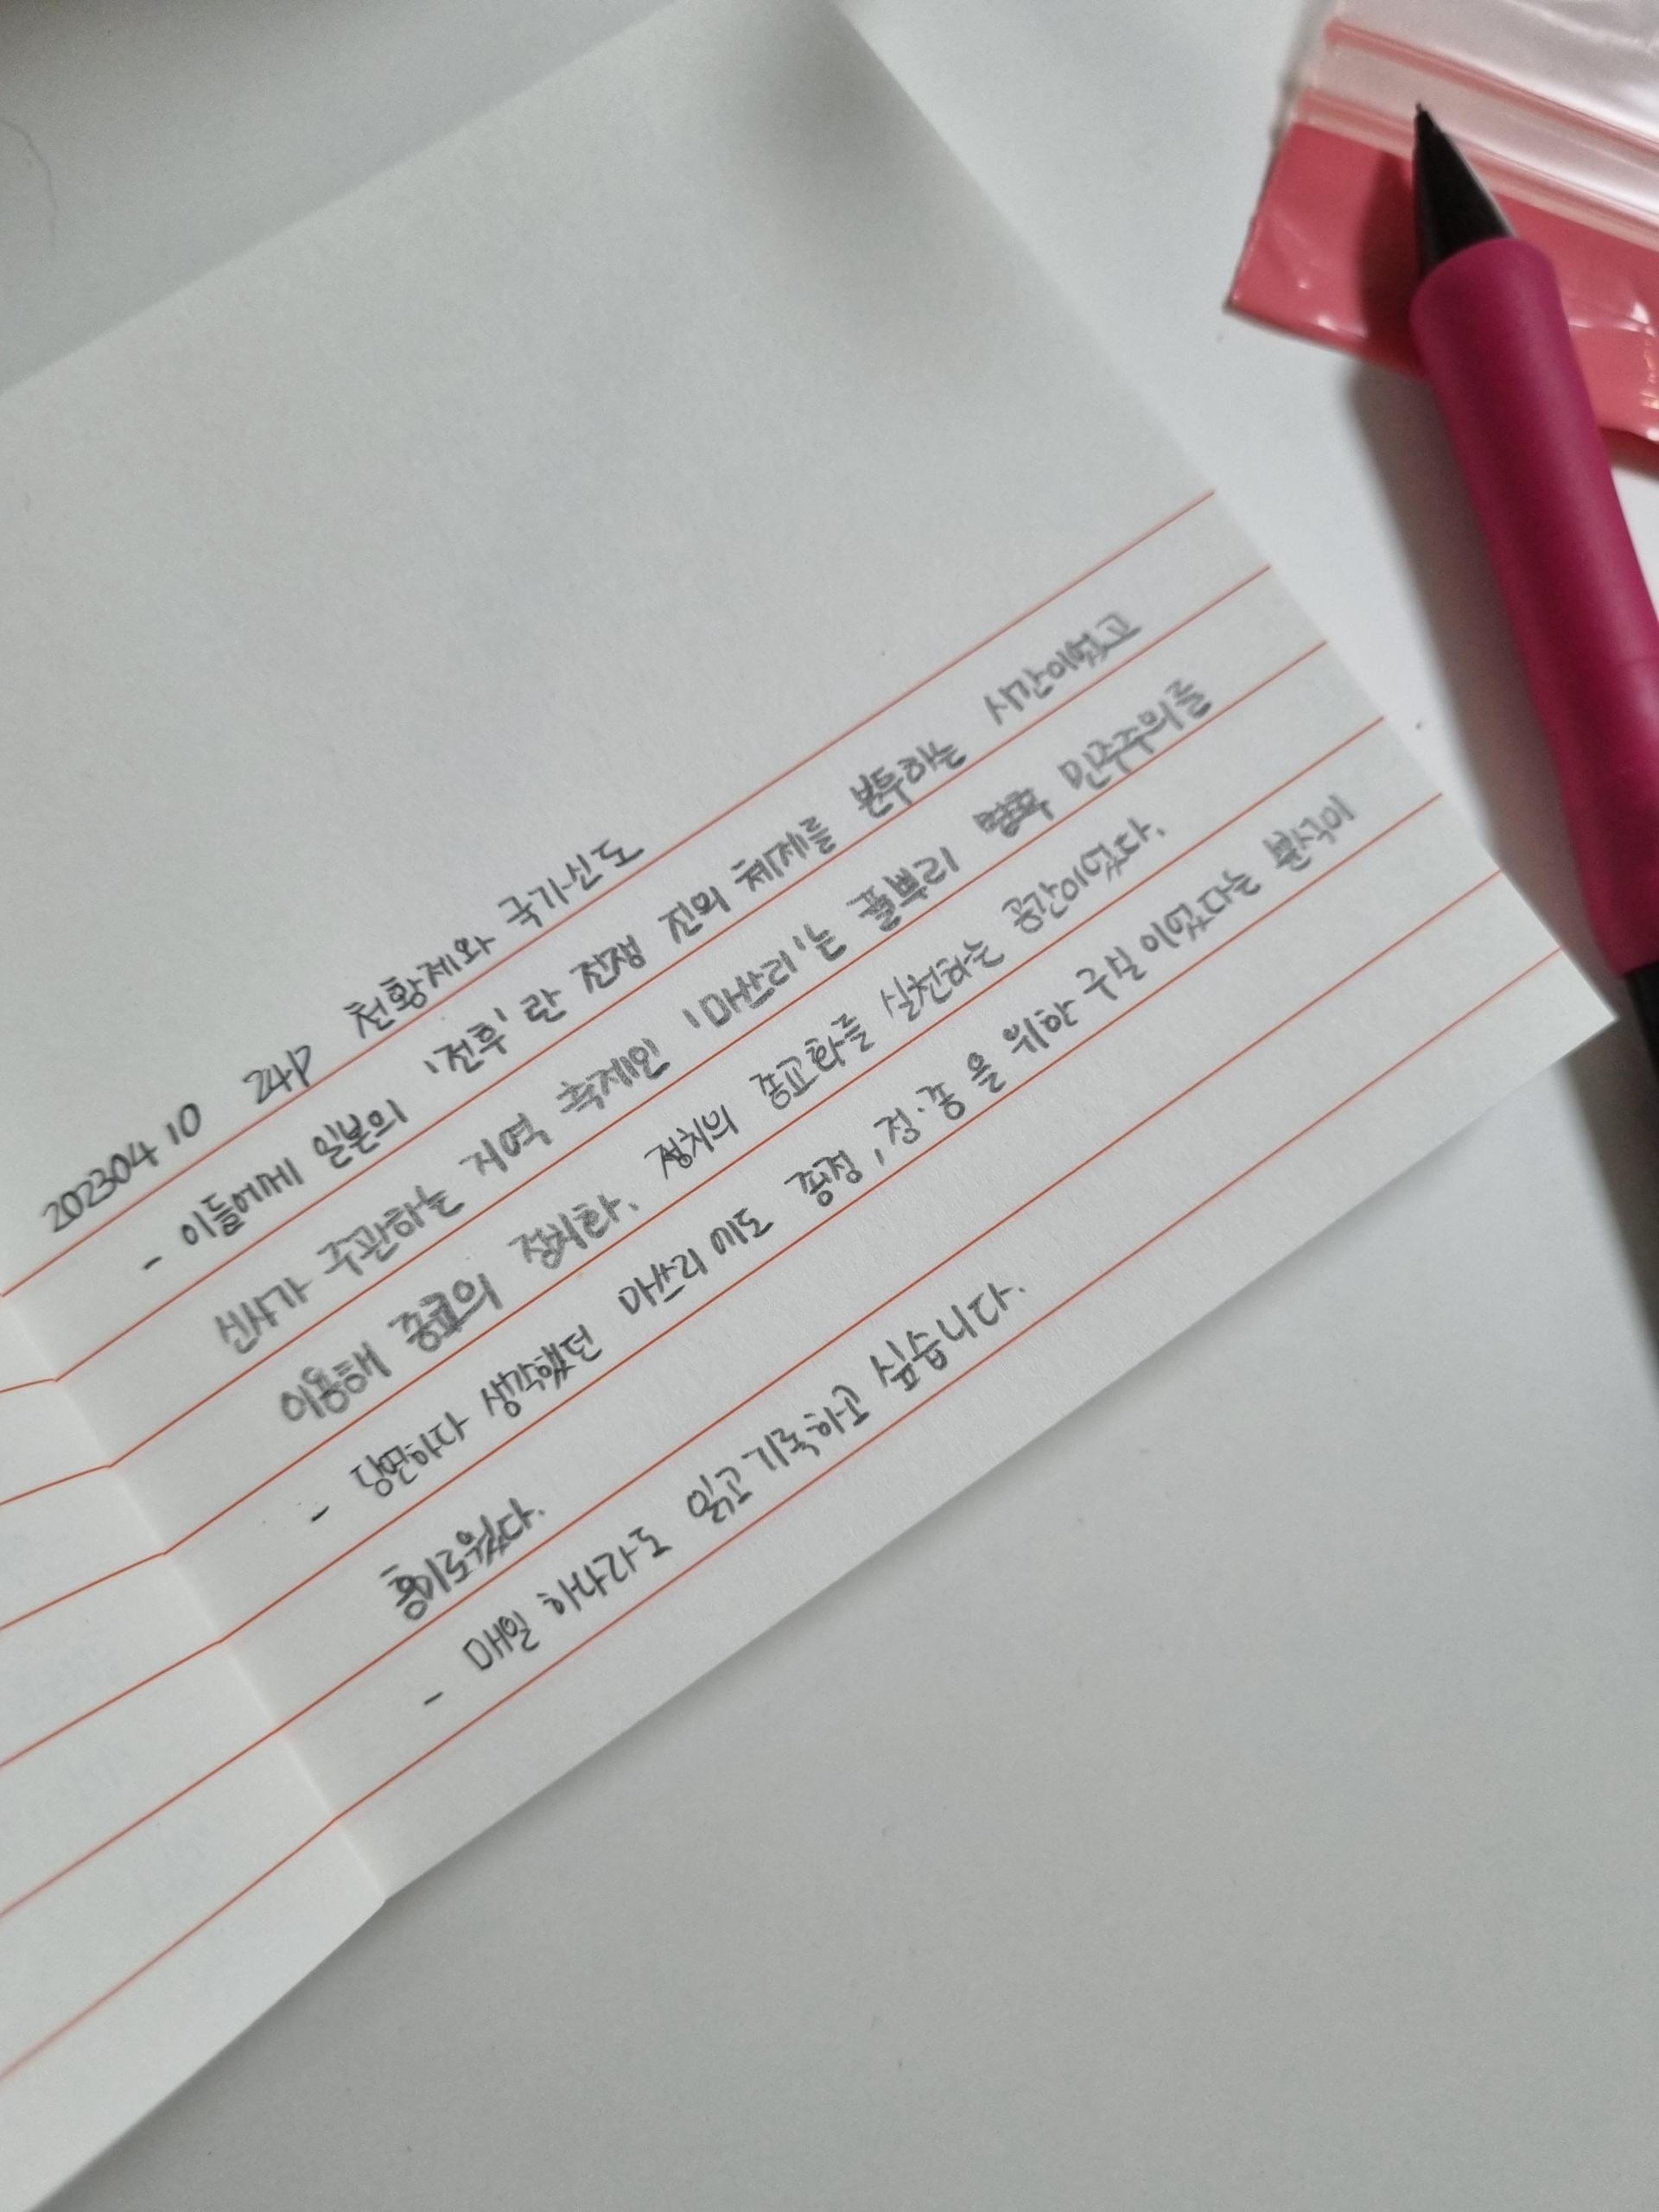 20230410 24P 천황제와 국가신도
- 이들에게 일본의 '전후'란 전쟁 전의 체제를 분투하는 시간이었고
신사가 주관하는 지역 축제인 '마쓰리'는 풀뿌리 민주주의를
이용해 종교의 정치화. 정치의 종교화를 실천하는 공간이었다.
- 당연하다 생각했던 마쓰리 에도 종정, 정·종 을 위한 구실 이었다는 분석이
흥미로웠다.
- 매일 하나라도 읽고 기록하고 싶습니다.